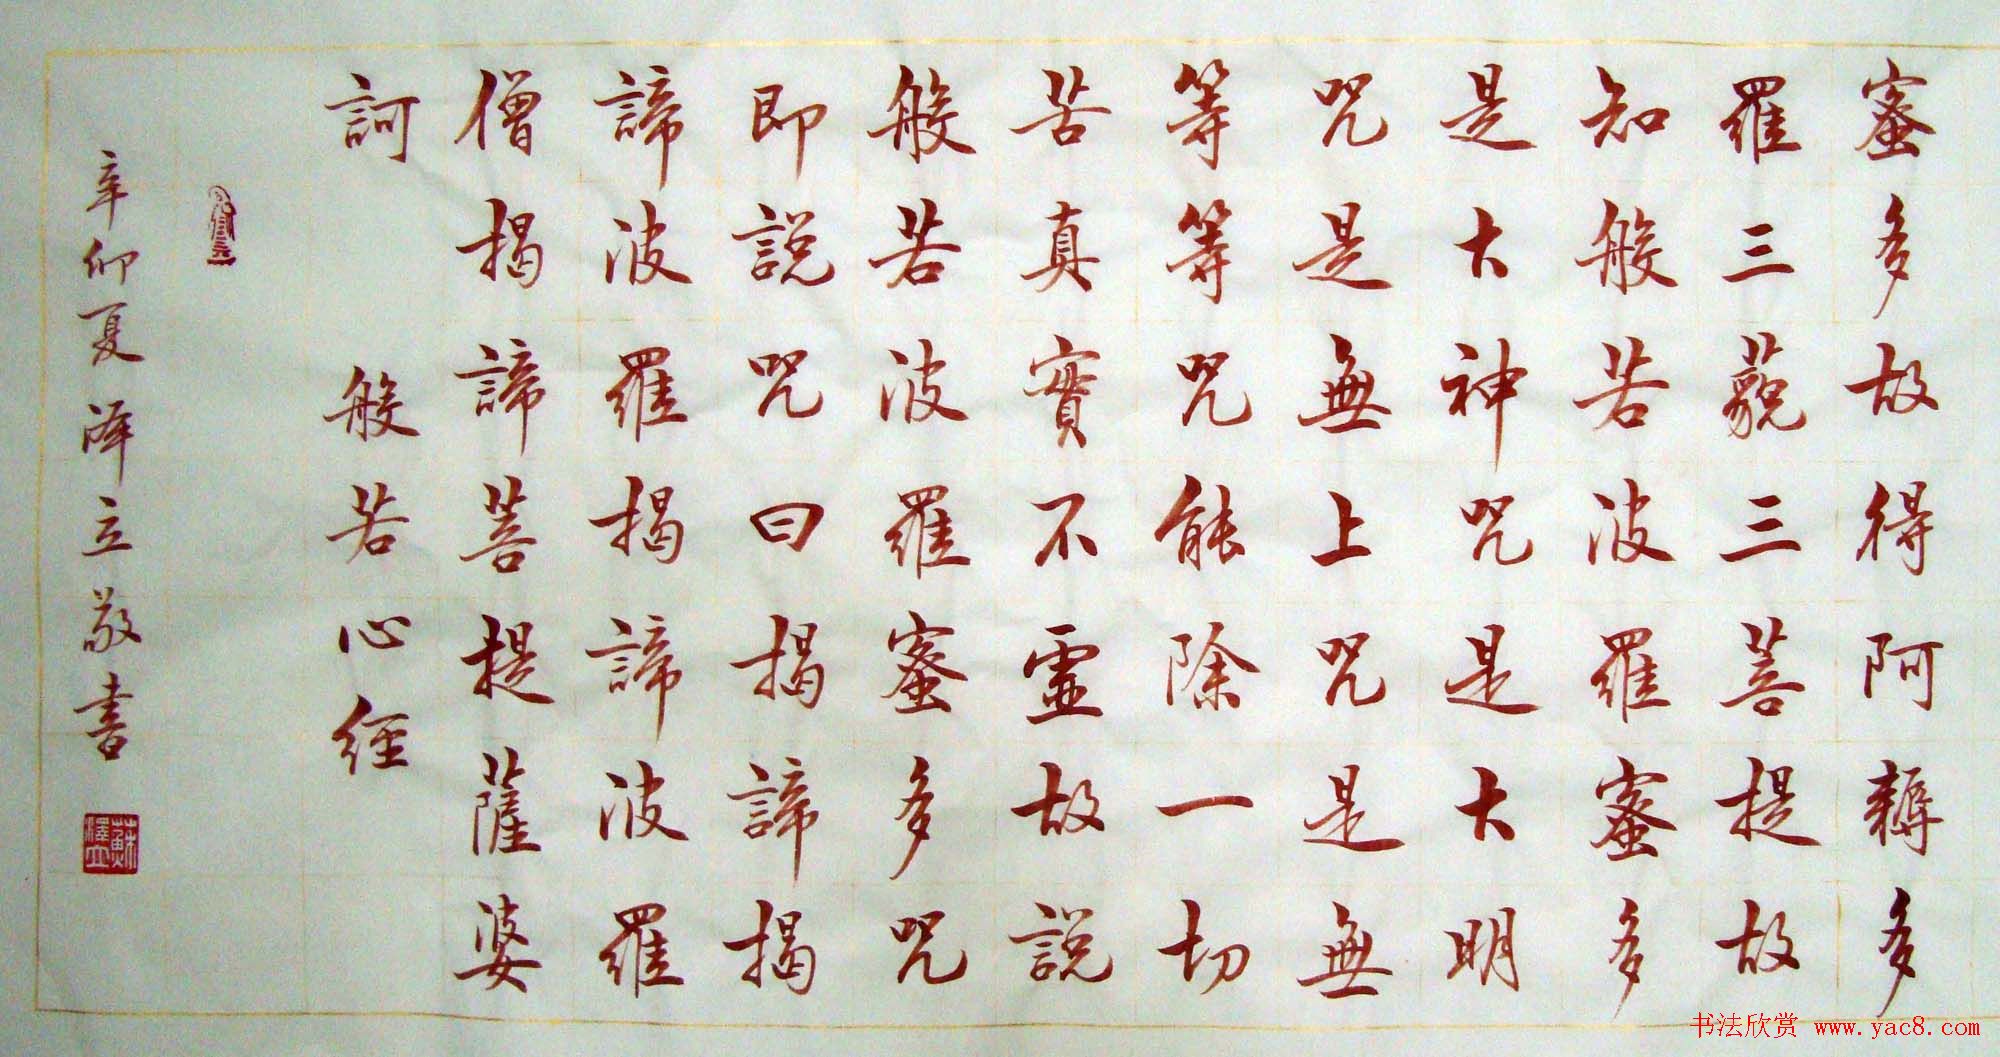 蜜多故得阿耨多
羅三藐三菩提故
知般若波羅蜜多
是大神咒是大明
咒是無上咒是無
等等咒能除一切
苦真實不虛故說
般若波羅蜜多咒
即說咒曰揭諦揭
諦波羅揭諦波羅
僧揭諦菩提薩婆
訶 般若心經
辛卯夏澤立敬書
蘇澤立
书法欣赏 www.yac8.com